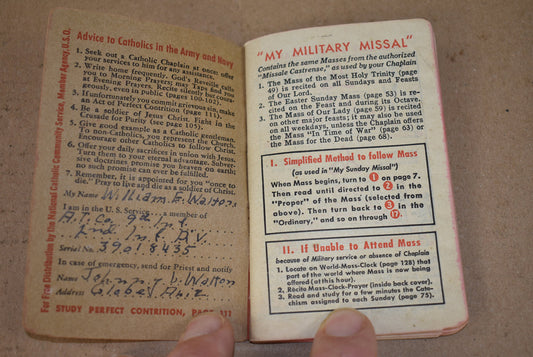 For Free Distribution by the National Catholic Community Service, Member Agency, U.S.O.
Advice to Catholics in the Army and Navy
1. Seek out a Catholic Chaplain at once; offer
your services to him for any assistance.
2. Write home frequently. God's Reveille calls
you to Morning Prayers; may Taps find you
at Evening Prayers. Recite silently but
ously, even in Public (pages 100-102).
3. If unfortunately you commit grievous sin, make
an Act of Perfect Contrition (page 111).
4. Be a soldier of Jesus Christ. Fight in the
Crusade for Purity (see page 115).
5. Give good example as a Catholic gentleman.
To non-Catholics, you represent the Church.
Encourage other Catholics to follow Christ.
6. Offer your daily sacrifices in union with Jesus.
Turn them to your eternal advantage. Subver-
sive doctrines promise you heaven on earth;
do such promises have any value?
7. Remember, it is appointed for you "once to
die." Pray to live and die as a soldier of Christ.
My Name William E. Walton
I am in the U. S. Service a member of
A.T. Co. 22
2nd Inf.
Serial No. 39018435
In case of emergency, send for Priest and notify
Name Johnny D. Walton
Address
STUDY PERFECT CONTRITION, PAGE 111
"MY MILITARY MISSAL"
Contains the same Masses from the authorized
"Missale Castrense," as used by your Chaplain
1. The Mass of the Most Holy Trinity (page
49) is recited on all Sundays and Feasts
of Our Lord.
2. The Easter Sunday Mass (page 53) is re-
cited on the Feast and during its Octave.
3. The Mass of Our Lady (page 59) is recited
on other major feasts; it may also be used
on all weekdays, unless the Chaplain offers
the Mass "In Time of War" (page 63) or
the Mass for the Dead (page 68).
I. Simplified Method to follow Mass
(as used in "My Sunday Missal")
When Mass begins, turn to 1 on page 7.
Then read until directed to 2 in the
"Proper" of the Mass (selected from
above). Then turn back to 3 in the
"Ordinary," and so on through 17.
II. If Unable to Attend Mass
because of Military service or absence of Chaplain
1. Locate on World-Mass-Clock (page 128) that
part of the world where Mass is now being
offered (at this hour).
2. Recite Mass-Clock-Prayer (inside back cover).
3. Read and study for a few minutes the Cate-
chism assigned to each Sunday (page 75).